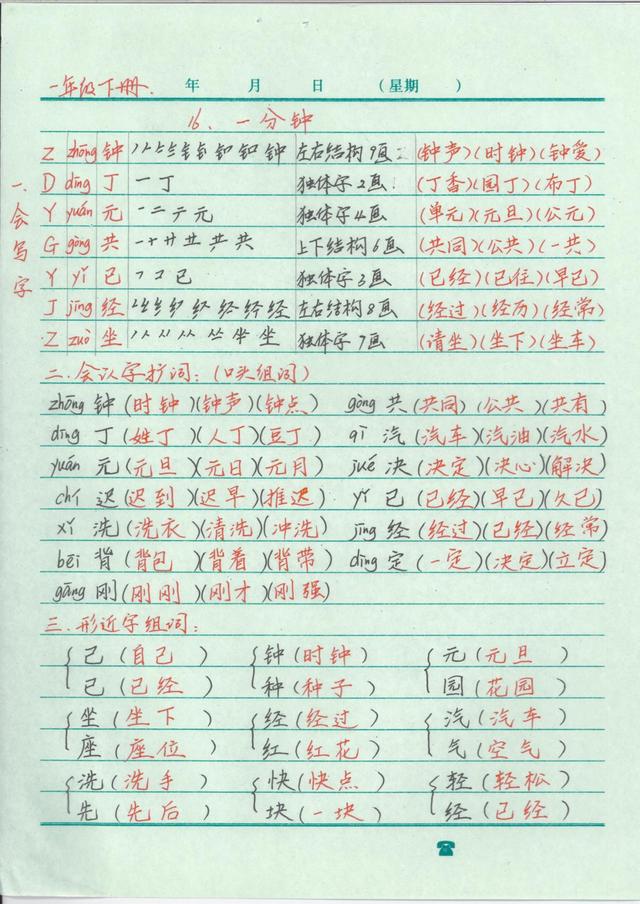 一年级下册. 年 月 日 (星期 )
16、一分钟
一.会写字
Z zhōng 钟 左右结构9画: (钟声)(时钟)(钟爱)
D dīng 丁 一丁 独体字2画: (丁香)(园丁)(布丁)
Y yuán 元 一二亍元 独体字4画 (单元)(元旦)(公元)
G gòng 共 一十廾龷共共 上下结构6画 (共同)(公共)(一共)
Y yǐ 已 ㇕コ已 独体字3画 (已经)(已往)(早已)
J jīng 经 左右结构8画 (经过)(经历)(经常)
Z zuò 坐 独体字7画 (请坐)(坐下)(坐车)
二.会认字扩词:(口头组词)
zhōng 钟(时钟)(钟声)(钟点) gòng 共(共同)(公共)(共有)
dīng 丁(姓丁)(人丁)(豆丁) qì 汽(汽车)(汽油)(汽水)
yuán 元(元旦)(元日)(元月) jué 决(决定)(决心)(解决)
chí 迟(迟到)(迟早)(推迟) yǐ 已(已经)(早已)(久已)
xǐ 洗(洗衣)(清洗)(冲洗) jīng 经(经过)(已经)(经常)
bēi 背(背包)(背着)(背带) dìng 定(一定)(决定)(立定)
gāng 刚(刚刚)(刚才)(刚强)
三.形近字组词:
己(自己) 钟(时钟) 元(元旦)
已(已经) 种(种子) 园(花园)
坐(坐下) 经(经过) 汽(汽车)
座(座位) 红(红花) 气(空气)
洗(洗手) 快(快点) 轻(轻松)
先(先后) 块(一块) 经(已经)